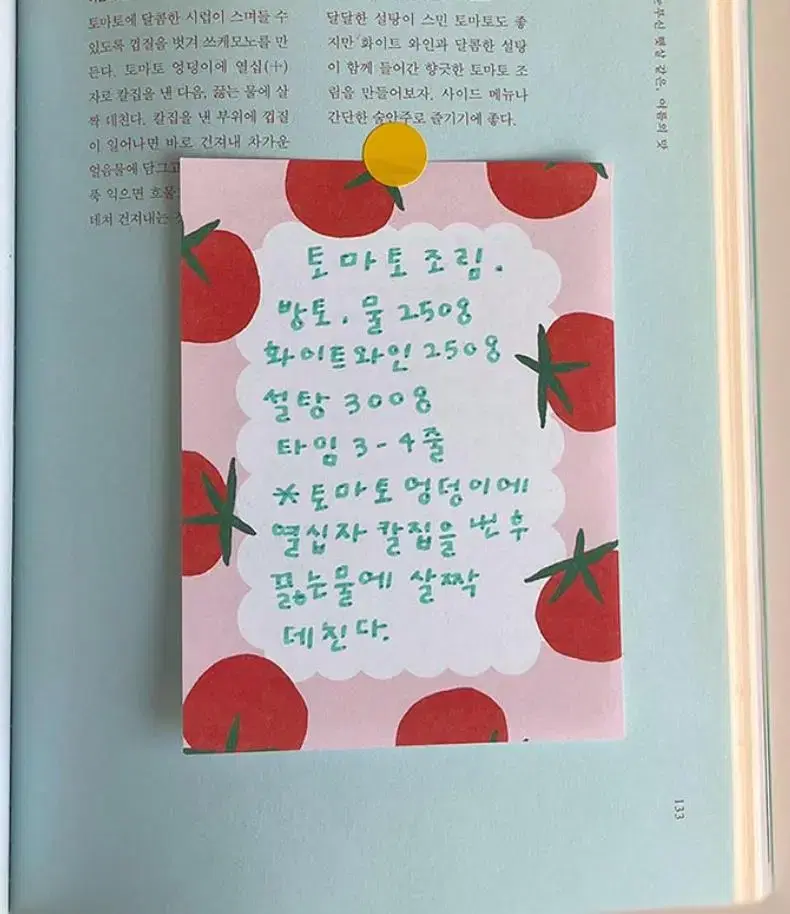 토마토에 달콤한 시럽이 스며들 수
있도록 껍질을 벗겨 쓰케모노를 만
든다. 토마토 엉덩이에 열십(十)
자로 칼집을 낸 다음, 끓는 물에 살
짝 데친다. 칼집을 낸 부위에 껍질
이 일어나면 바로 건져내 차가운
얼음물에 담그고
푹 익으면 흐물
데쳐 건져내는
달달한 설탕이 스민 토마토도 좋
지만 화이트 와인과 달콤한 설탕
이 함께 들어간 향긋한 토마토 조
림을 만들어보자. 사이드 메뉴나
간단한 술안주로 즐기기에 좋다.
눈부신 햇살 같은, 여름의 맛
토마토조림.
방토, 물 250g
화이트와인 250g
설탕 300g
타임 3-4줄
*토마토 엉덩이에
열십자 칼집을 낸 후
끓는물에 살짝
데친다.
133